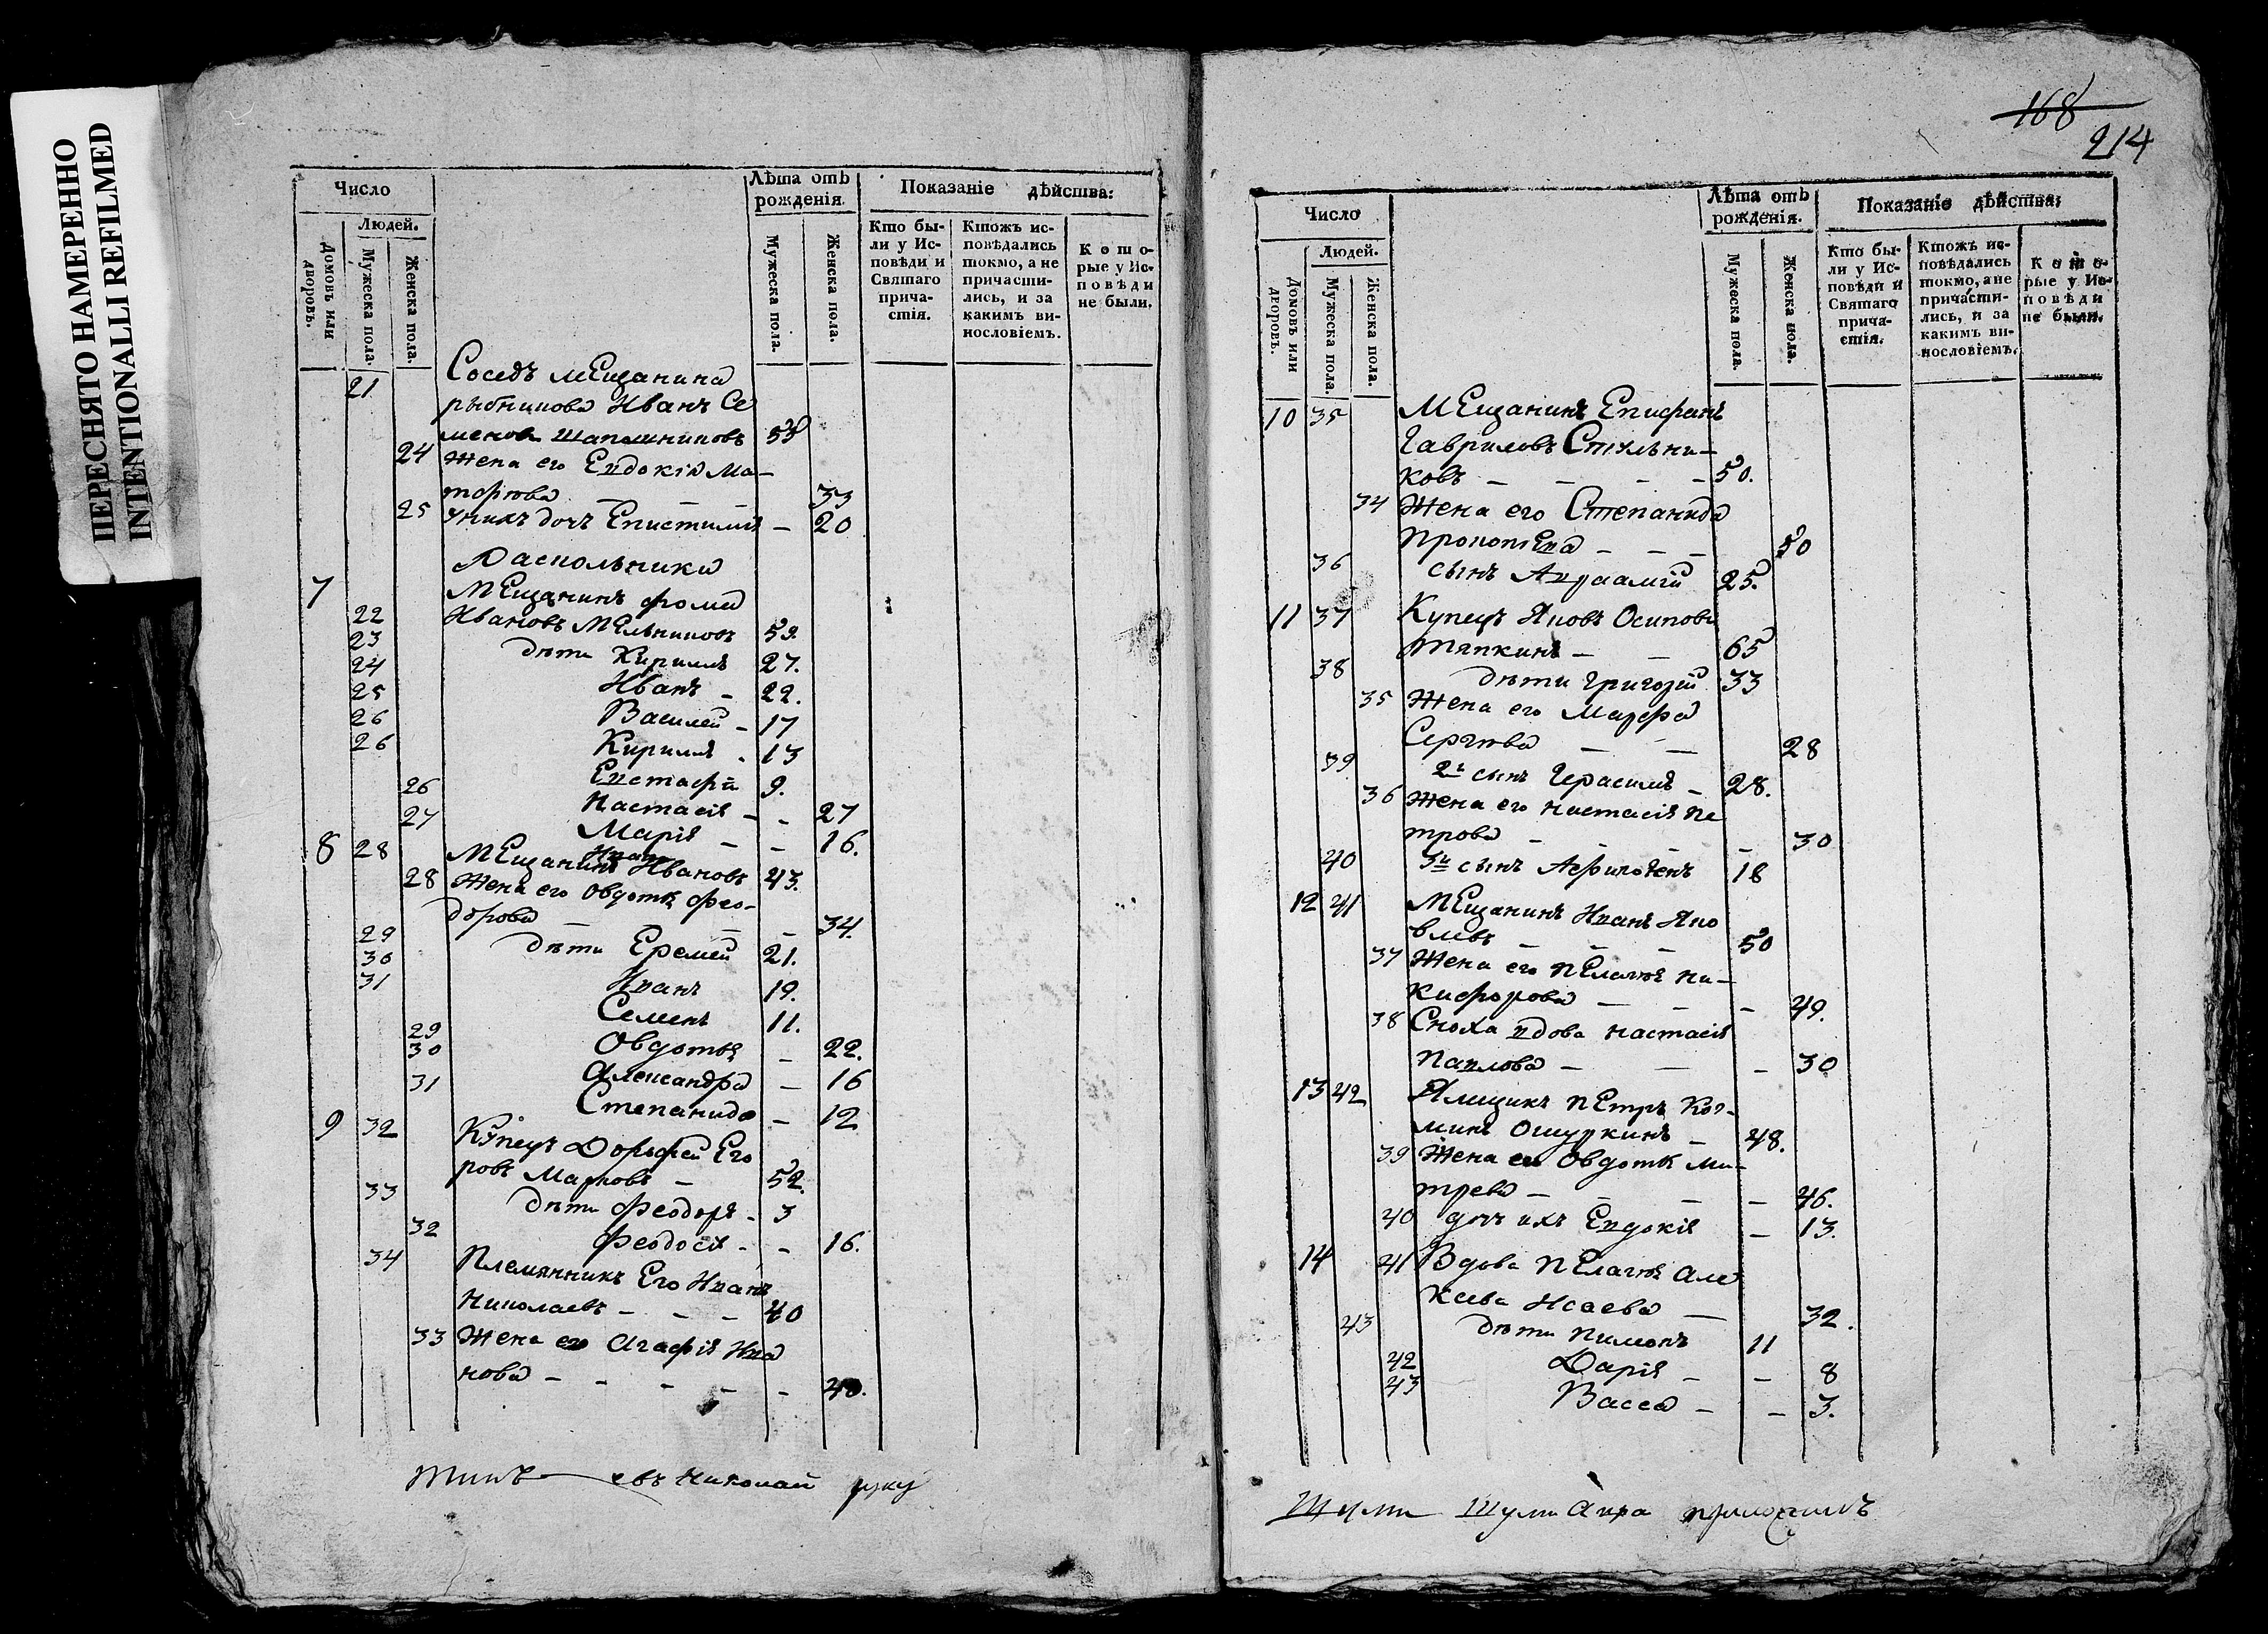 ПЕРЕСНЯТО НАМЕРЕННО
INTENTIONALLI REFILMED
Число
Людей.
Домовъ или дворовъ.
Мужеска пола.
Женска пола.
Лѣта отъ рожденія.
Мужеска пола.
Женска пола.
Показаніе дѣйства:
Кто были у Исповѣди и Святаго причастія.
Ктожъ исповѣдались токмо, а не причастились, и за какимъ винословіемъ.
Которые у Исповѣди не были.
21 Соседъ мещанина
рыбникова Иванъ Се
меновъ Шапошниковъ
24 Жена его Евдокія Ма-
33
25 У нихъ дочь Епистимія - 20
Раскольники
7 Мещанинъ Фома
22 Ивановъ Мельниковъ 59.
23 дѣти Кириллъ 27.
24 Иванъ - 22.
25 Василей - 17
26 Кириллъ - 13
26 Евстафій 9.
26 Настасія - - 27
27 Марія - - 16.
8 28 Мещанинъ Иванъ Ивановъ 43.
28 Жена его Овдотья Фео-
дорова - - - 34.
29 дѣти Еремей 21.
30 Иванъ 19.
31 Семенъ 11.
29 Овдотья - 22.
30 Александра - 16
31 Степанида - 12
9 32 Купецъ Дорофей Его
ровъ Марковъ - 52.
33 дѣти Феодоръ - 3
32 Феодосія - - 16.
34 Племянникъ Его Иванъ
Николаевъ - - - 40
33 Жена его Агафія Ива
нова - - - - - 40.
евъ Николай руку
168
214
Число
Людей.
Домовъ или дворовъ.
Мужеска пола.
Женска пола.
Лѣта отъ рожденія.
Мужеска пола.
Женска пола.
Показаніе дѣйства:
Кто были у Исповѣди и Святаго причастія.
Ктожъ исповѣдались токмо, а не причастились, и за какимъ винословіемъ.
Которые у Исповѣди не были.
10 35 Мещанинъ Епифанъ
Гавриловъ Стульни-
ковъ - - - 50.
34 Жена его Степанида
Прокопіева - - - 50
36 сынъ Авраамій 25.
11 37 Купецъ Яковъ Осиповъ
Тяпкинъ - - 65
38 дѣти Григорій 33
35 Жена его Марфа
Сергѣева - - 28
39 2й сынъ Герасимъ - 28.
36 Жена его Настасія Пе
трова - - - 30
40 3й сынъ 18
12 41 Мещанинъ Иванъ Яко
влевъ - - - 50
37 Жена его Пелагея Ни-
кифорова - - - 49.
38 Сноха вдова Настасія
Павлова - - - 30
13 42 Ямщикъ Петръ Коз-
минъ Ошуркинъ - 48.
39 Жена его Овдотья Ми-
трева - - - - 46.
40 дочь ихъ Евдокія - 13.
14 41 Вдова Пелагея Але
ксева Исаева - 32.
43 дѣти Пимонъ 11
42 Дарія - - 8
43 Васса - - 3.
приложилъ